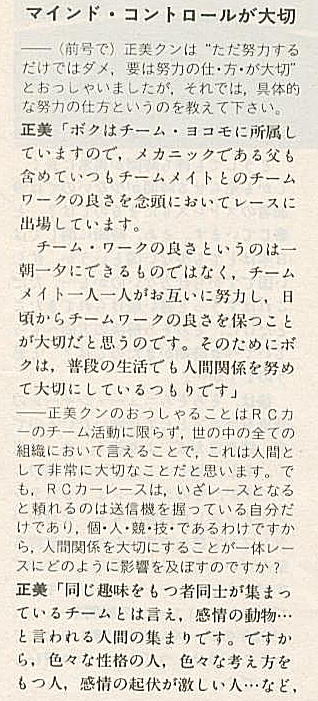 マインド・コントロールが大切
――（前号で）正美クンは“ただ努力する
だけではダメ，要は努力の仕・方・が大切”
とおっしゃいましたが，それでは，具体的
な努力の仕方というのを教えて下さい。
正美「ボクはチーム・ヨコモに所属し
ていますので，メカニックである父も
含めていつもチームメイトとのチーム
ワークの良さを念頭においてレースに
出場しています。
チーム・ワークの良さというのは一
朝一夕にできるものではなく，チーム
メイト一人一人がお互いに努力し，日
頃からチームワークの良さを保つこと
が大切だと思うのです。そのためにボ
クは，普段の生活でも人間関係を努め
て大切にしているつもりです」
――正美クンのおっしゃることはＲＣカ
ーのチーム活動に限らず，世の中の全ての
組織において言えることで，これは人間と
して非常に大切なことだと思います。で
も，ＲＣカーレースは，いざレースとなる
と頼れるのは送信機を握っている自分だ
けであり，個・人・競・技・であるわけですか
ら，人間関係を大切にすることが一体レー
スにどのように影響を及ぼすのですか？
正美「同じ趣味をもつ者同士が集まっ
ているチームとは言え，感情の動物…
と言われる人間の集まりです。ですか
ら，色々な性格の人，色々な考え方を
もつ人，感情の起伏が激しい人…など，